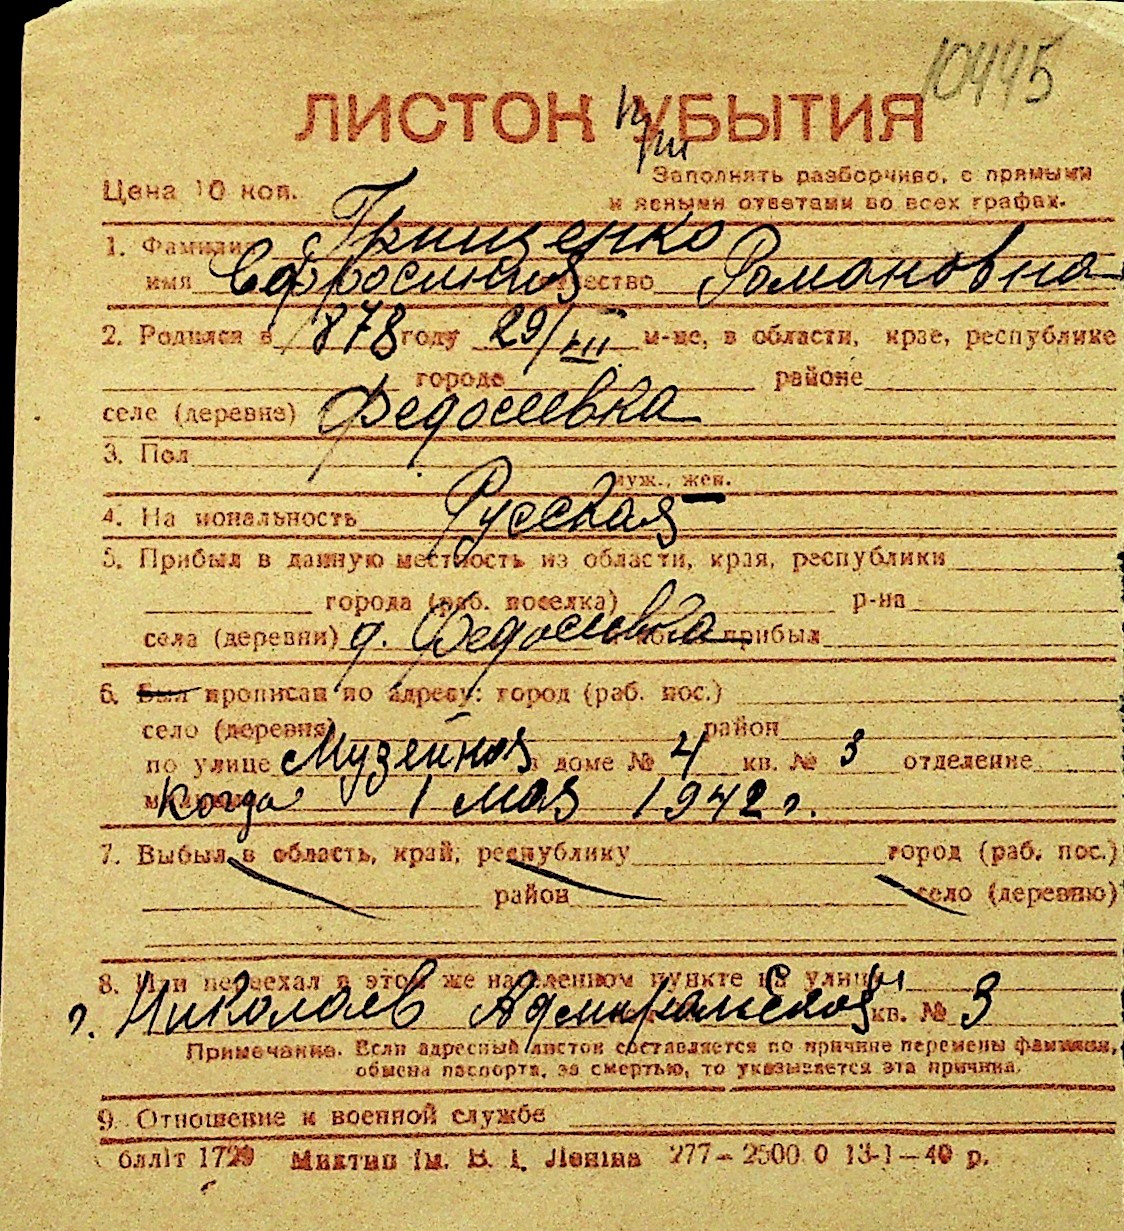 10445
ЛИСТОК УБЫТИЯ
Цена 10 коп.
Заполнять разборчиво, с прямыми
и ясными ответами во всех графах.
1. Фамилия Грищенко
имя Ефросиния отчество Романовна
2. Родился в 1878 году 29/III м-це, в области, крае, республике
городе районе
селе (деревне) Федосеевка
3. Пол
муж., жен.
4. Национальность Русская
5. Прибыл в данную местность из области, края, республики
города (раб. поселка) р-на
села (деревни) д. Федосеевка прибыл
6. Был прописан по адресу: город (раб. пос.)
село (деревня) район
по улице Музейная в доме № 4 кв. № 3 отделение
Когда 1 мая 1942 г.
7. Выбыл в область, край, республику город (раб. пос.)
район село (деревню)
8. Или переехал в этом же населенном пункте на улицу
г. Николаев Адмиральской кв. № 3
Примечание. Если адресный листок составляется по причине перемены фамилии,
обмена паспорта, за смертью, то указывается эта причина.
9. Отношение к военной службе
блліт 1729 Миктип ім. В. І. Леніна 277–2500 0 13-1–40 р.